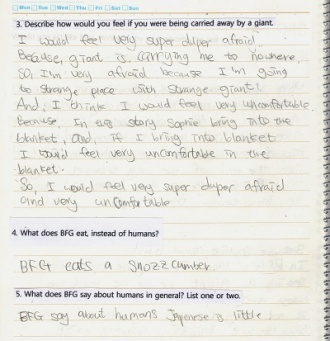 Mon Tue Wed Thu Fri Sat Sun
3. Describe how would you feel if you were being carried away by a giant.
I would feel very super duper afraid
Because, giant is carrying me to nowhere.
So, I'm very afraid because I'm going
to strange place with strange giant!
And, I think I would feel very uncomfortable.
Because, In the story Sophie bring into the
blanket, and, if I bring into blanket
I would feel very uncomfortable in the
blanket.
So, I would feel very super duper afraid
and very uncomfortable
4. What does BFG eat, instead of humans?
BFG eats a snozzcumber.
5. What does BFG say about humans in general? List one or two.
BFG say about humans Japenese is little.